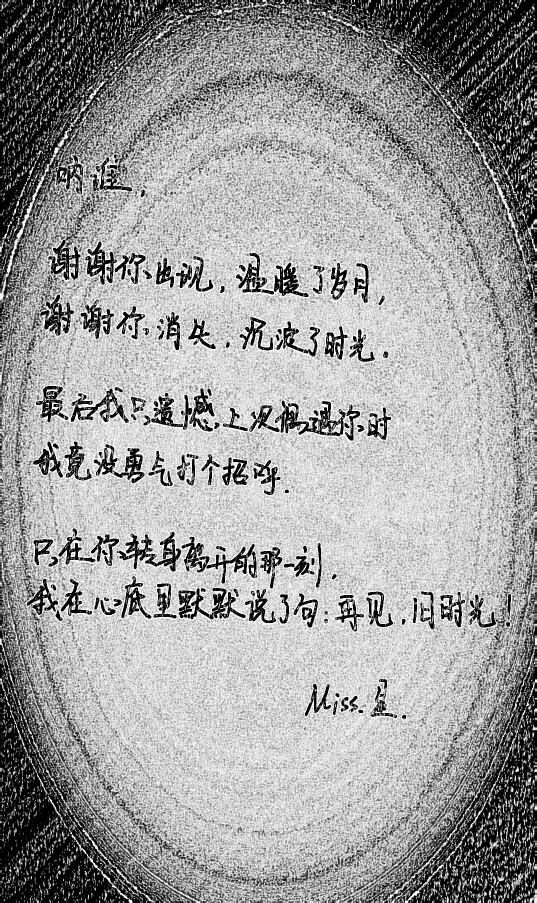 呐谁,
谢谢你出现,温暖了岁月,
谢谢你消失,沉淀了时光。
最后我只遗憾,上次偶遇你时
我竟没勇气打个招呼.
只在你转身离开的那一刻,
我在心底里默默说了句:再见,旧时光!
Miss.星.